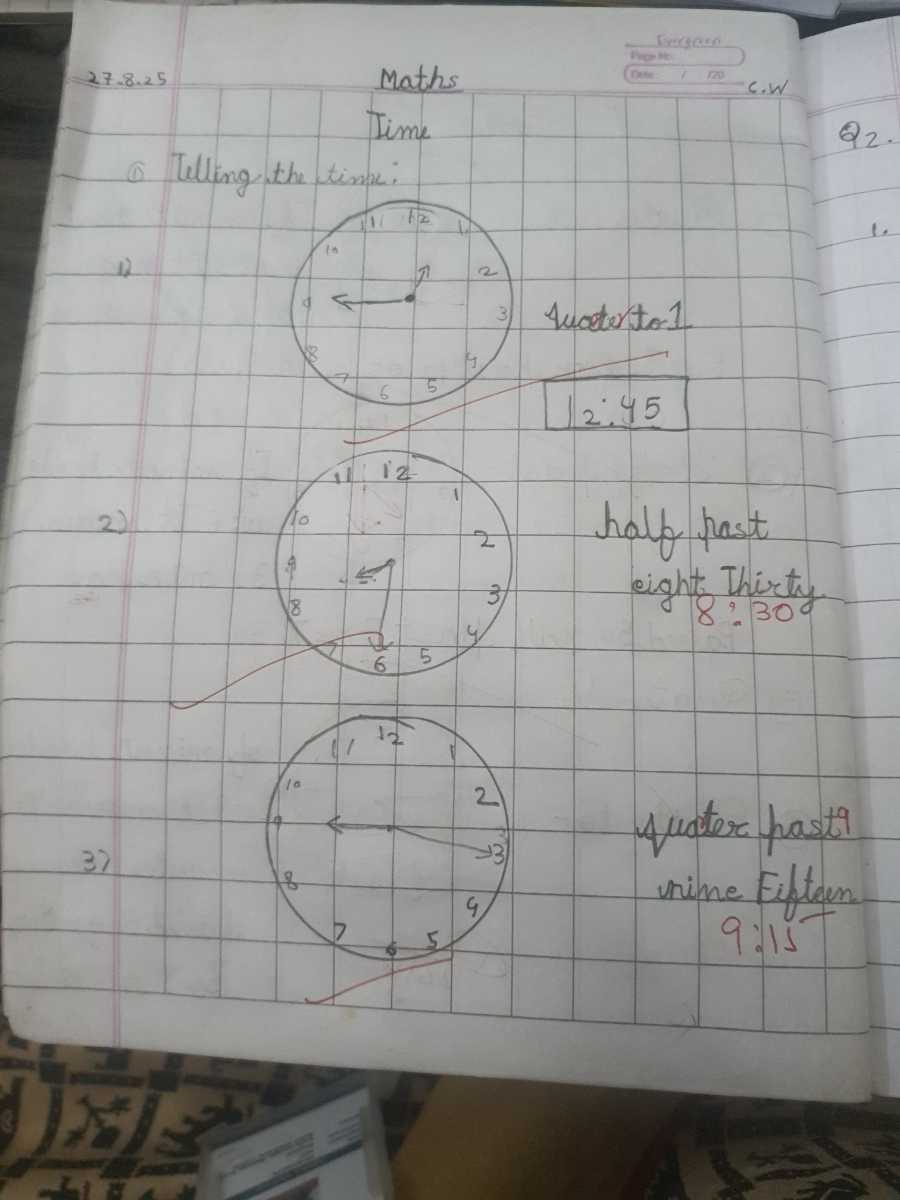 Evergreen
Page No.
Date: / /20
27.8.25
Maths
C.W
Time
Q2.
① Telling the time:
1.
1)
11 12 1
10 2
9 3
8 4
7 6 5
Quater to 1
12:45
2)
11 12 1
10 2
9 3
8 4
7 6 5
half past
eight Thirty
8:30
3)
11 12 1
10 2
9 3
3
8 4
7 6 5
quater past 9
nine Fifteen
9:15